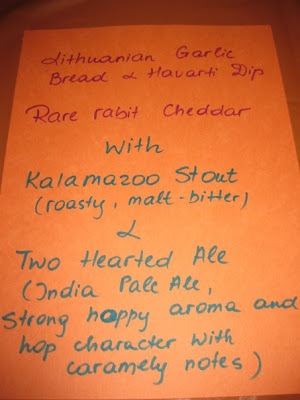 Lithuanian Garlic
Bread & Havarti Dip
Rare rabit Cheddar
With
Kalamazoo Stout
(roasty, malt-bitter)
&
Two Hearted Ale
(India Pale Ale,
Strong hoppy aroma and
hop character with
caramely notes)